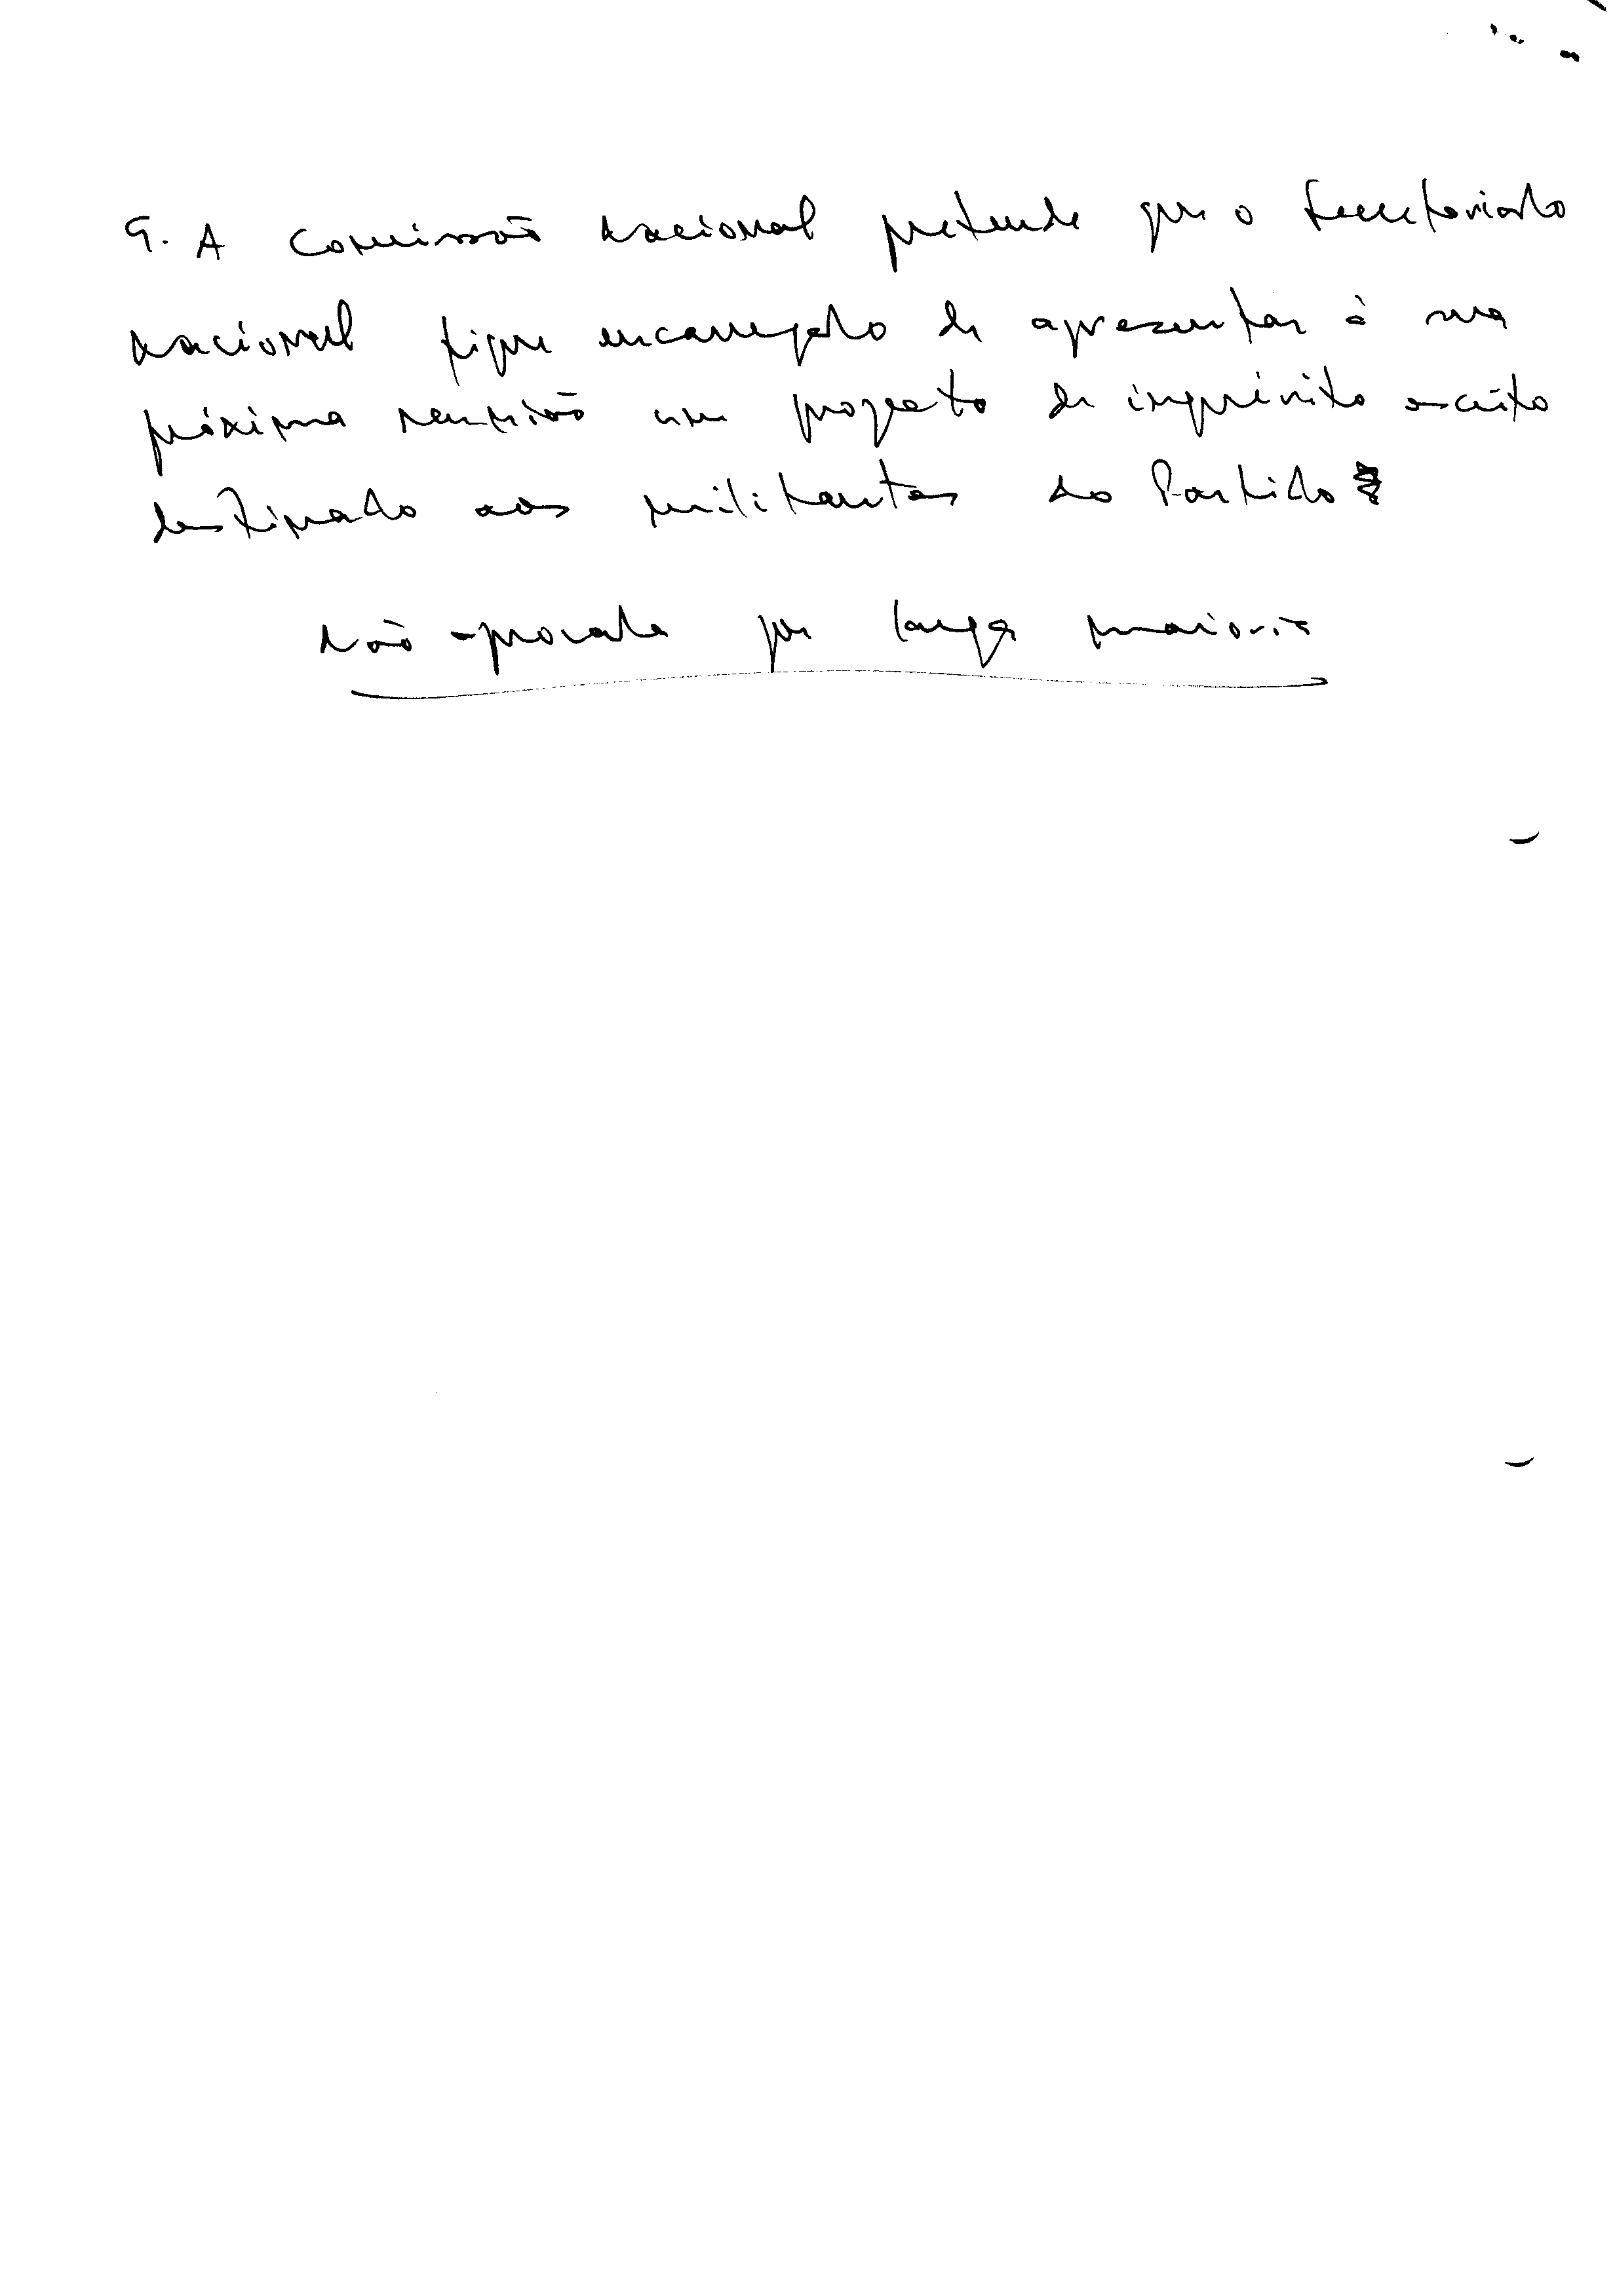 9. A Comissão Nacional pretende que o Secretariado
Nacional fique encarregado de apresentar à sua
próxima reunião um projecto de inquérito escrito
destinado aos militantes do Partido
Não aprovada por larga maioria